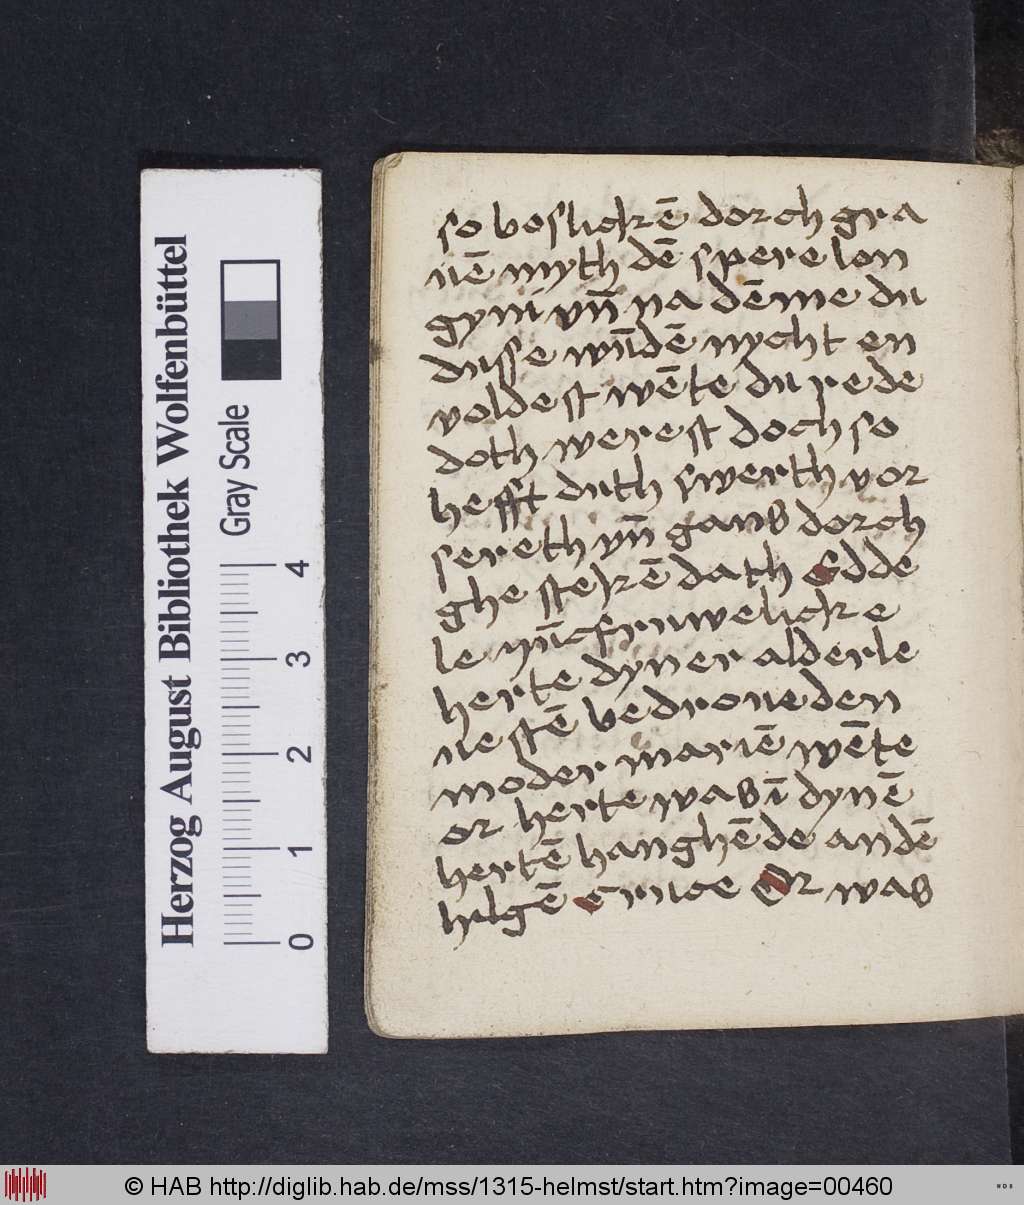 so boslickē dorch gra
uē myth dē spere lon
gyni vn̄ na dēme du
dusse wūdē nycht en
voldest wēte du rede
doth werest doch so
hefft duth swerth vor
sereth vn̄ gans dorch
ghe stekē dath Edde
le yūcfruwelicke
herte dyner alderle
uestē bedroueden
moder mariē wēte
or herte was ī dynē
hertē hanghēde andē
helgē Cruce Or was
Herzog August Bibliothek Wolfenbüttel
Gray Scale
0 1 2 3 4
© HAB http://diglib.hab.de/mss/1315-helmst/start.htm?image=00460